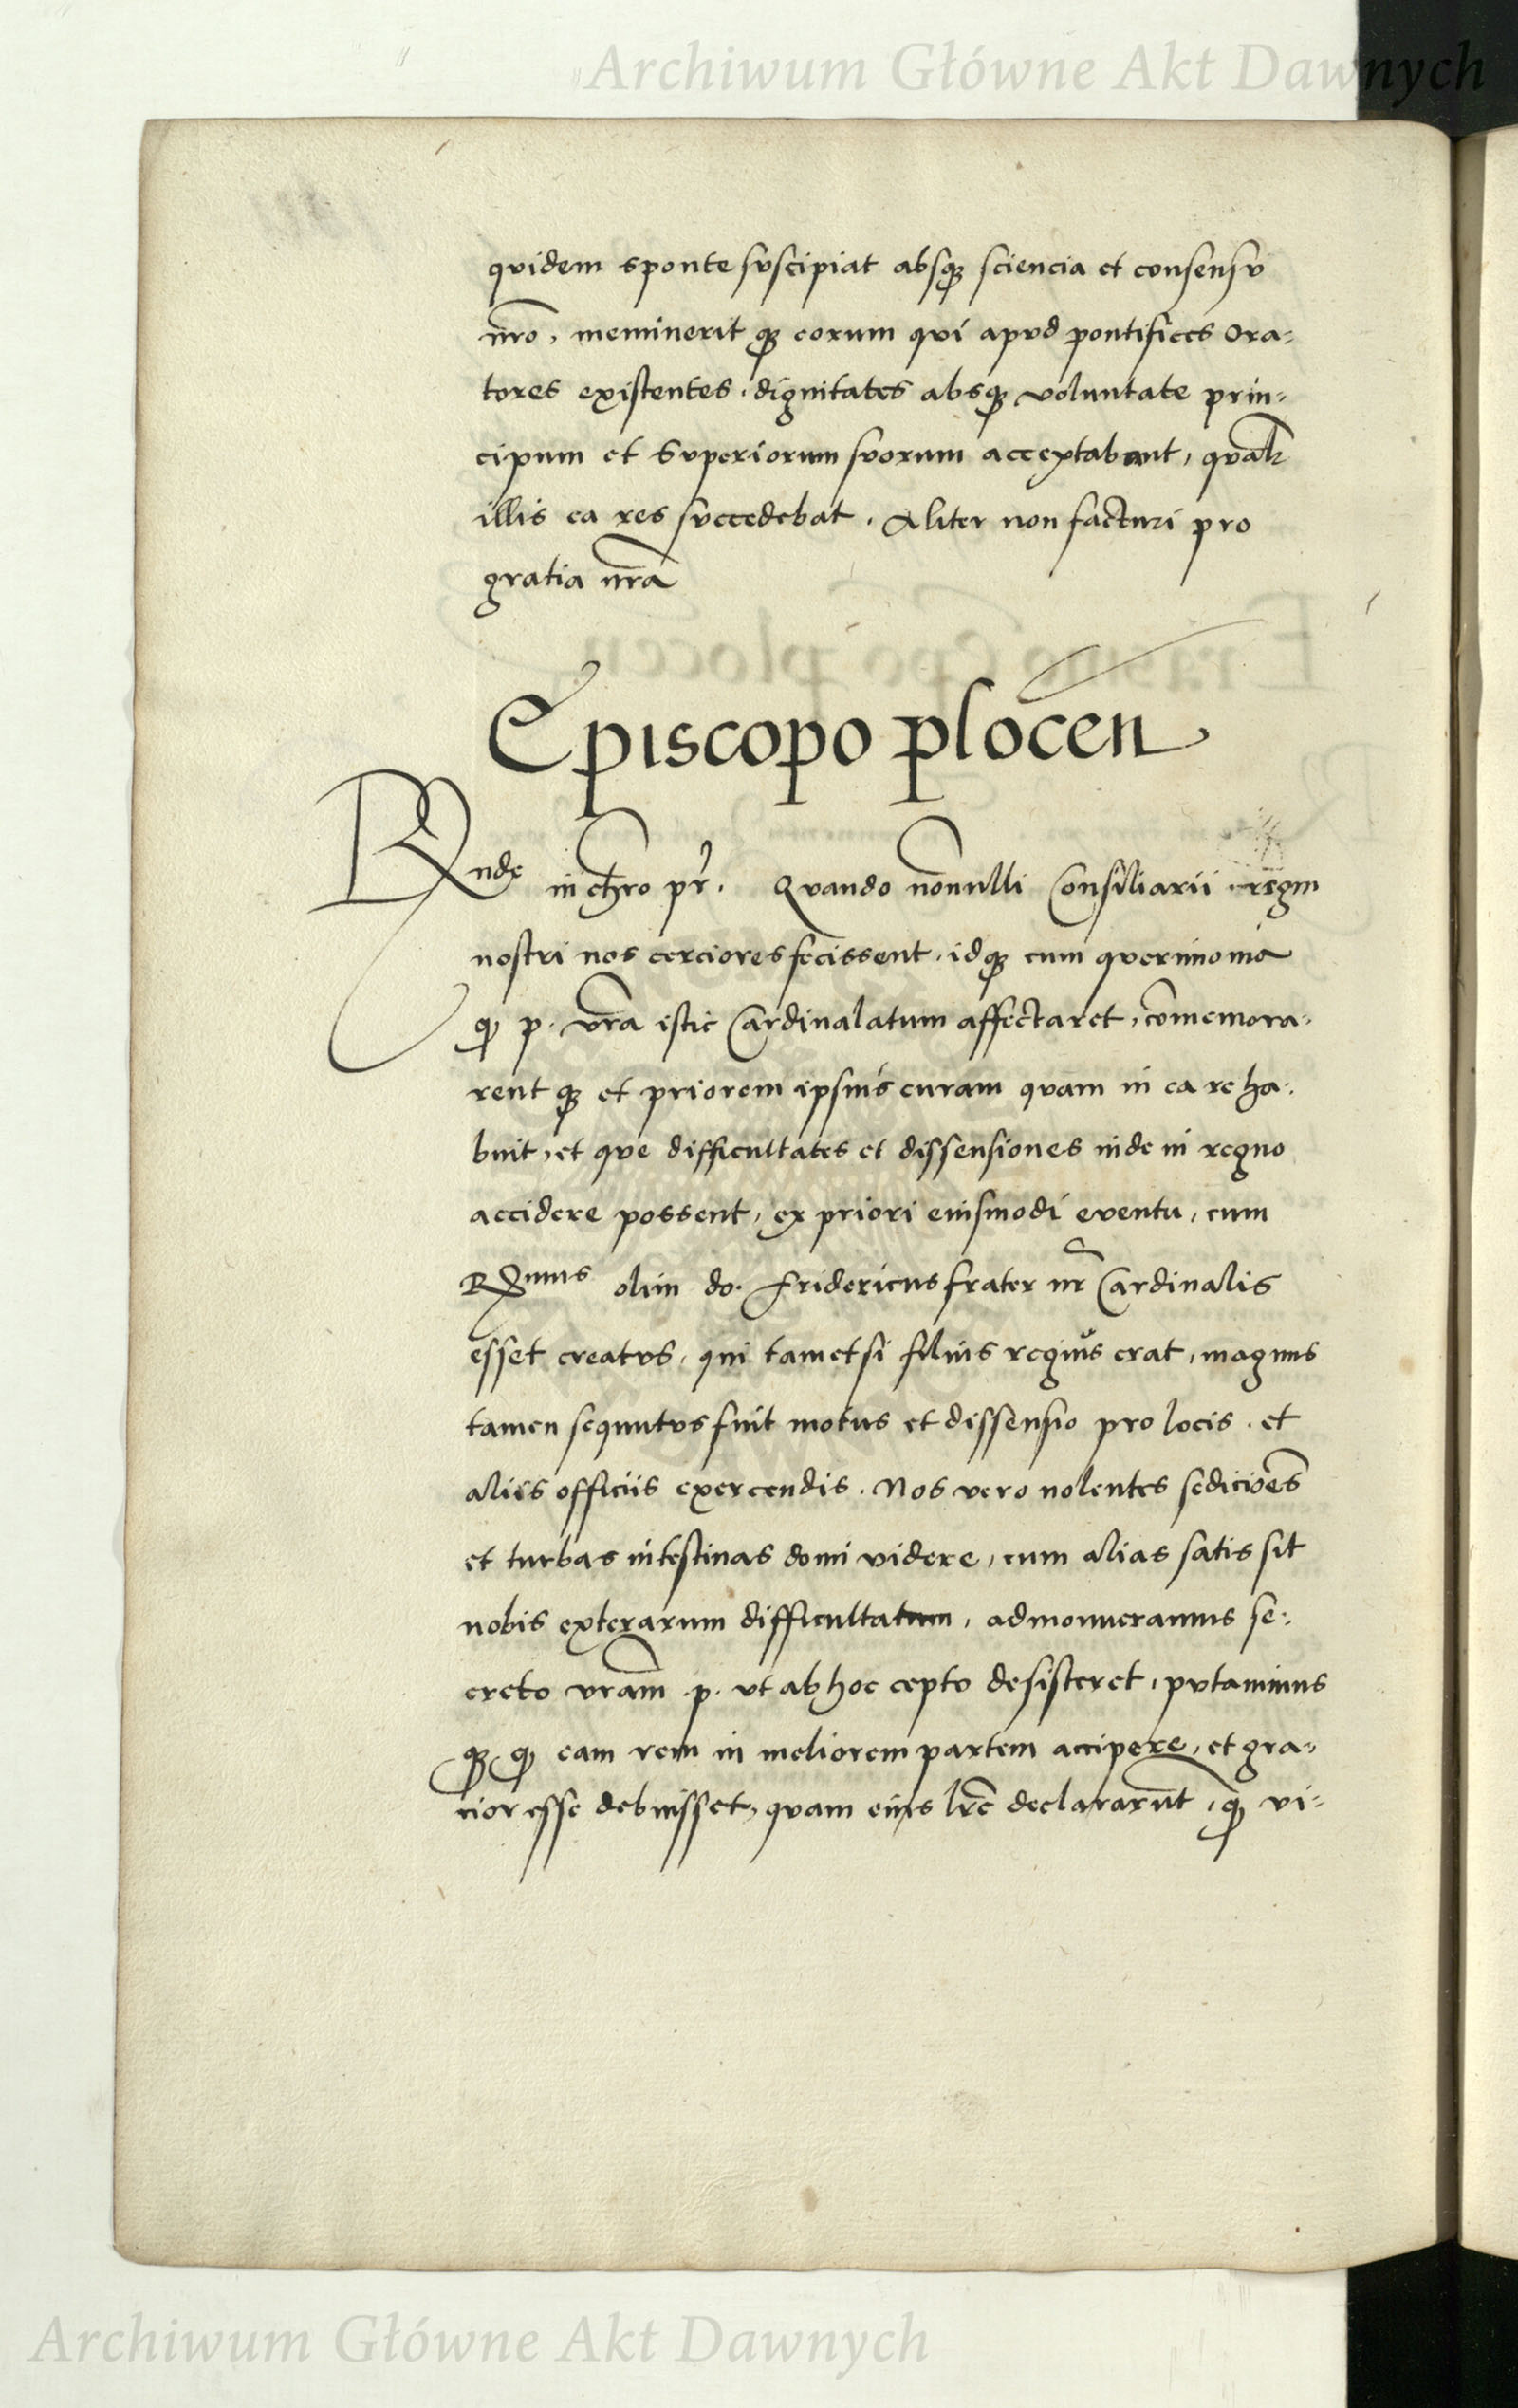 Archiwum Główne Akt Dawnych
quidem sponte suscipiat absq; sciencia et consensu
nr̃o, meminerit q; eorum qui apud pontifices ora-
tores existentes, dignitates absq; voluntate prin-
cipum et superiorum suorum acceptabant,
illis ea res succedebat. Aliter non facturi pro
gratia nr̃a
Episcopo plocen̄
Rnde in chr̃o pr̃. Quando nonnulli Consiliarii regni
nostri nos cerciores fecissent, idq; cum querimonia
q p. vr̃a istic Cardinalatum affectaret, cõmemora-
rent q; et priorem ipsius curam quam in ea re ha-
buit, et que difficultates et dissensiones inde in regno
accidere possent, ex priori eiusmodi eventu, cum
Rdimus olim do. Fridericus frater nr̃ Cardinalis
esset creatus, qui tametsi filius regius erat, magnus
tamen sequutus fuit motus et dissensio pro locis, et
aliis officiis exercendis. Nos vero nolentes sediciões
et turbas intestinas domi videre, cum alias satis sit
nobis exterarum difficultatum, admonueramus se-
creto vr̃am p. ut ab hoc cepto desisteret, putavimus
q; q eam rem in meliorem partem accipere, et gra-
cior esse debuisset, quam eius lr̃e declararũt, q vi-
Archiwum Główne Akt Dawnych